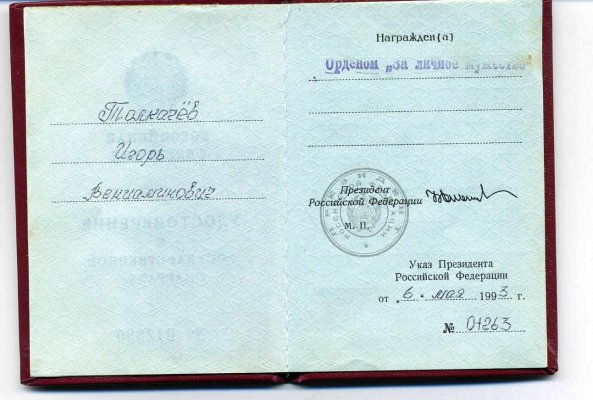 Толкачёв
Игорь
Вениаминович
Награжден(а)
Орденом „За личное мужество"
Президент
Российской Федерации
М. П.
Указ Президента
Российской Федерации
от „6" мая 1993 г.
№ 01263